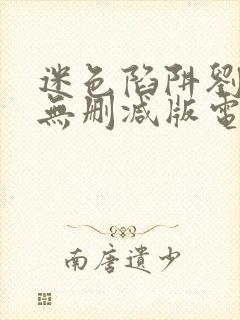 迷色陷阱劉
無刪減版電
南唐遺少